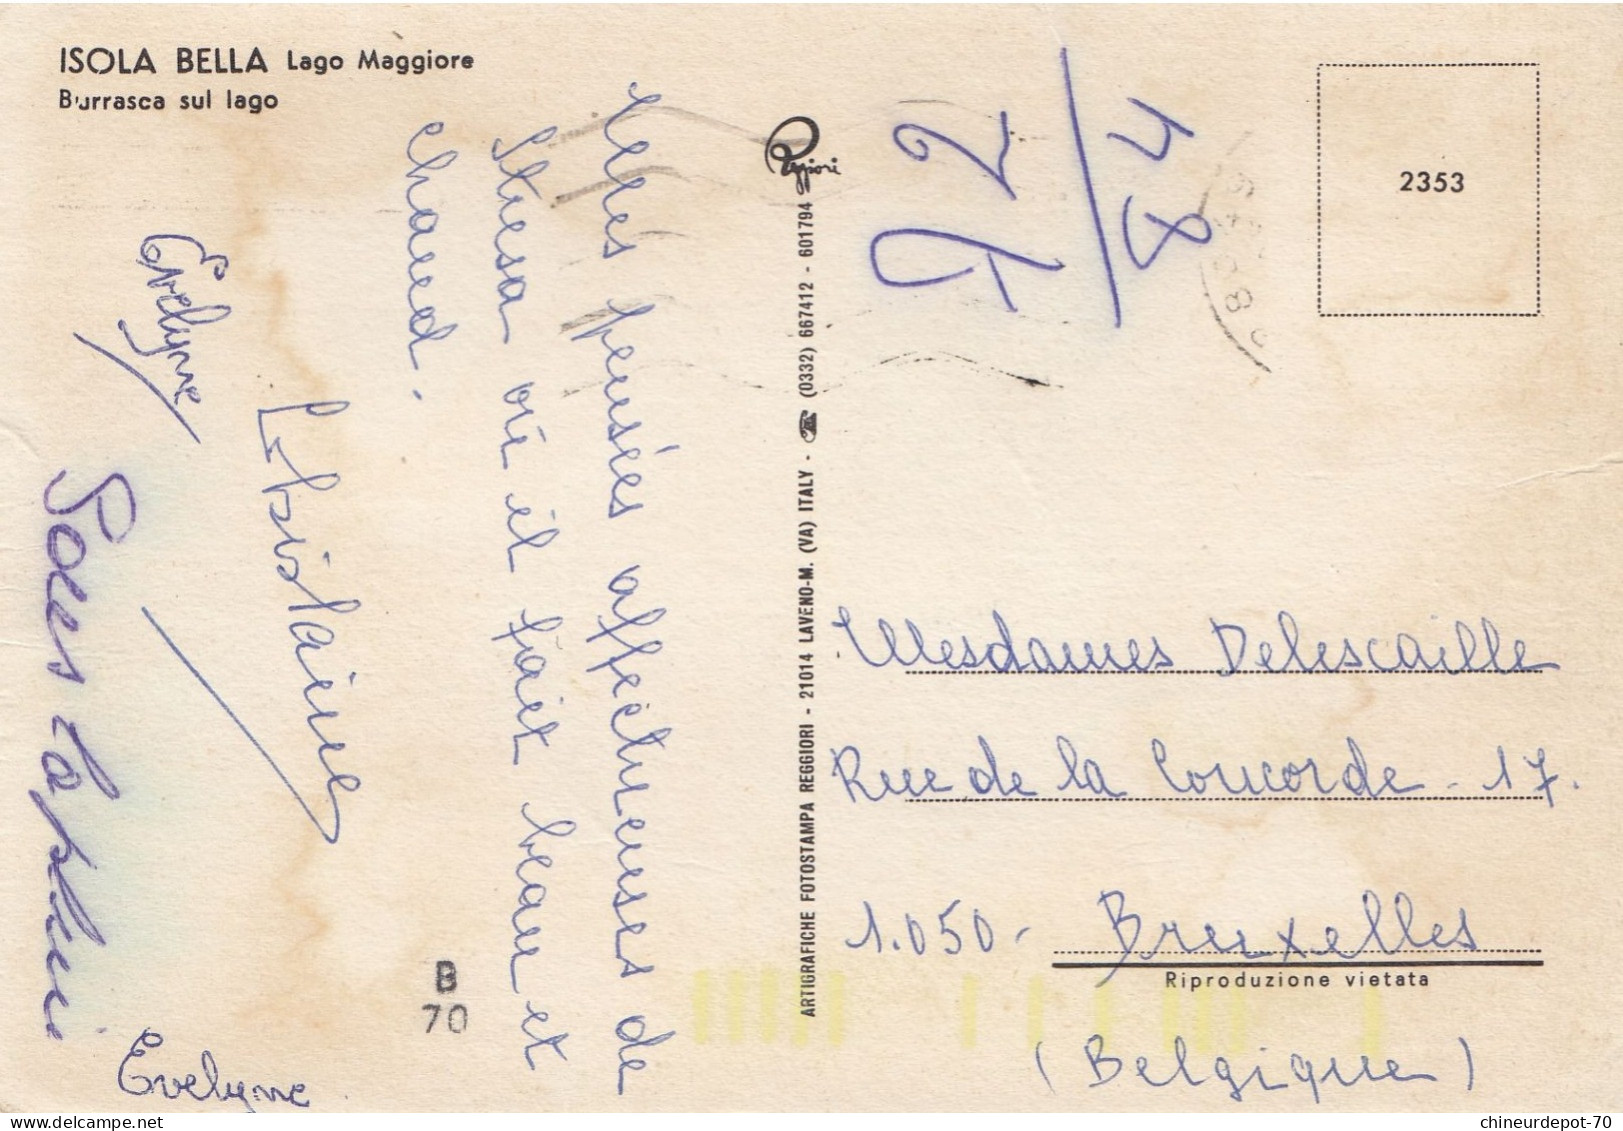 ISOLA BELLA Lago Maggiore
Burrasca sul lago
Mes pensées affectueuses de
Stresa où il fait beau et
chaud.
Evelyne
Evelyne
B
70
Reggiori
ARTIGRAFICHE FOTOSTAMPA REGGIORI - 21014 LAVENO-M. (VA) ITALY - ☎ (0332) 667412 - 601794
92
84
2353
Mesdames Delescaille
Rue de la Concorde - 17.
1.050 - Bruxelles
Riproduzione vietata
(Belgique)
chineurdepot-70